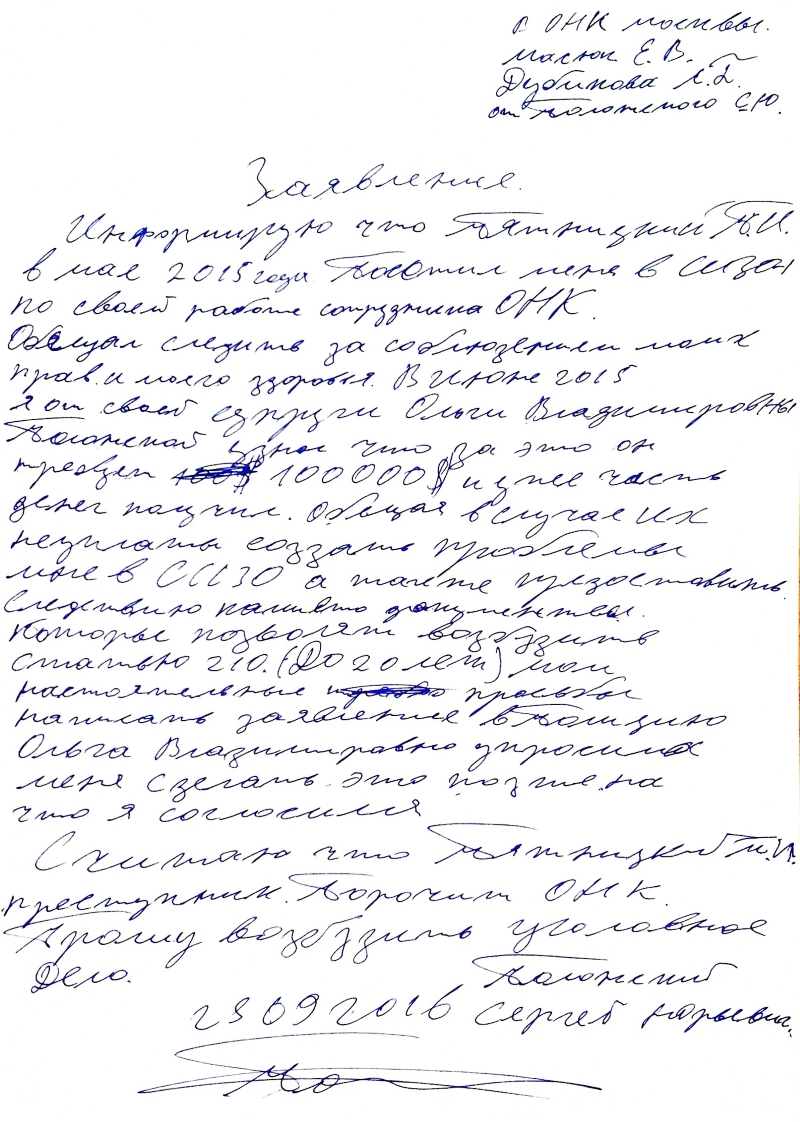 В ОНК Москвы.
Масюк Е.В.
Дубикова Л.Б.
от Положского С.Ю.
Заявление.
Информирую что Пятницкий П.И.
в мае 2015 года Посетил меня в сизо
по своей работе сотрудника ОНК.
Обещал следить за соблюдением моих
прав. и моего здоровья. В Июне 2015
я от своей супруги Ольги Владимировны
узнал что за это он
100000$ и уже часть
денег получил. Обещая в случае их
неуплаты создать проблемы
мне в СИЗО а также предоставить
следствию документы.
которые позволят возбудить
статью 210. (До 20 лет) мои
настоятельные просьбы
написать заявление в Полицию
Ольга Владимировна упросила
меня сделать это позже. на
что я согласился
Считаю что Пятницкий П.И.
преступник. Порочит ОНК.
Прошу возбудить уголовное
Дело.
2016 Сергей Юрьевич.